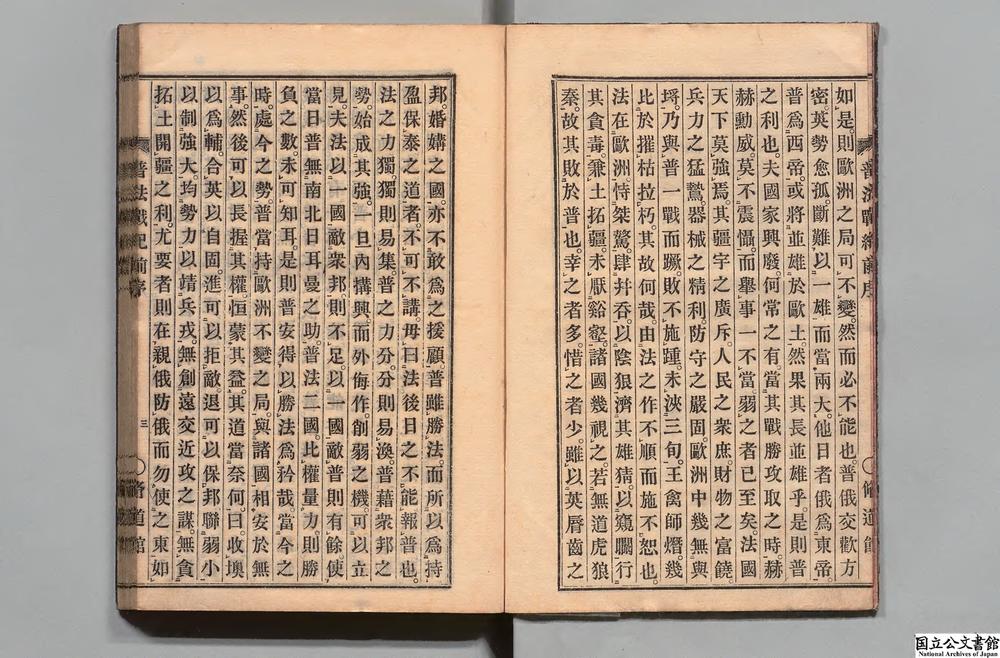 如是則歐洲之局可不變然而必不能也普俄交歡方
密英勢愈孤斷難以一雄而當兩大他日者俄爲東帝
普爲西帝或將並雄於歐土然果其長並雄乎是則普
之利也夫國家興廢何常之有當其戰勝攻取之時赫
赫動威莫不震懾而舉事一不當弱之者已至矣法國
天下莫強焉其疆宇之廣斥人民之衆庶財物之富饒
兵力之猛鷙器械之精利防守之嚴固歐洲中幾無與
埒乃與普一戰而蹶敗不施踵未浹三旬王禽師熸幾
比於摧枯拉朽其故何哉由法之作不順而施不恕也
法在歐洲恃桀驁肆幷呑以陰狠濟其雄猜以窺覵行
其貪毒兼土拓疆未厭谿壑諸國幾視之若無道虎狼
秦故其敗於普也幸之者多惜之者少雖以英脣齒之
邦婚媾之國亦不敢爲之援顧普雖勝法而所以爲持
盈保泰之道者不可不講毋曰法後日之不能報普也
法之力獨獨則易集普之力分分則易渙普藉衆邦之
勢始成其強一旦內搆興而外侮作削弱之機可以立
見夫法以一國敵衆邦則不足以一國敵普則有餘使
當日普無南北日耳曼之助普法二國比權量力則勝
負之數未可知耳是則普安得以勝法爲矜哉當今之
時處今之勢普當持歐洲不變之局與諸國相安於無
事然後可以長握其權恒蒙其益其道當奈何曰收墺
以爲輔合英以自固進可以拒敵退可以保邦聯弱小
以制強大均勢力以靖兵戎無創遠交近攻之謀無貪
拓土開疆之利尤要者則在親俄防俄而勿使之東如
普法戰紀前序
三
脩道館
国立公文書館
National Archives of Japan